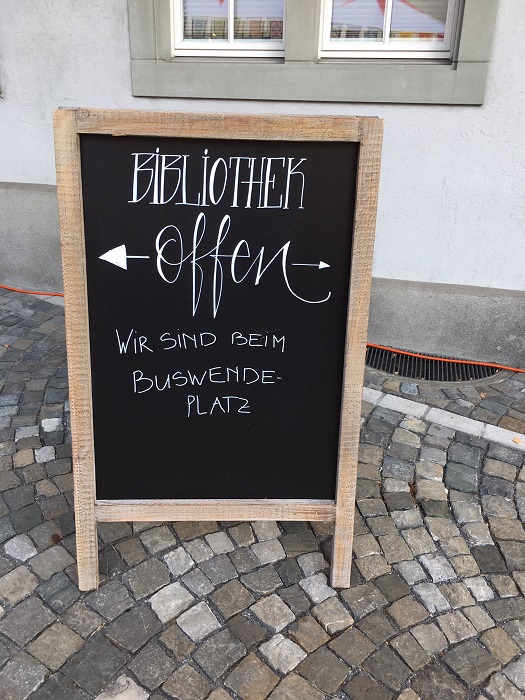 BIBLIOTHEK
Offen
WIR SIND BEIM
BUSWENDE-
PLATZ